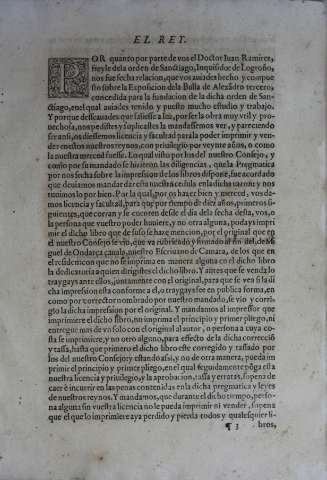 EL REY.
POR quanto por parte de vos el Doctor Iuan Ramirez,
freyle dela orden de Sanctiago, Inquisidor de Logroño,
nos fue fecha relacion, que vos auiades hecho y compue
sto sobre la Exposicion dela Bulla de Alexãdro tercero,
concedida para la fundacion de la dicha orden de San-
ctiago, enel qual auiades tenido y puesto mucho estudio y trabajo.
Y porque desseauades que saliesse a luz, por ser la obra muy vtil y pro-
uechosa, nos pedistes y suplicastes la mandassemos ver, y pareciendo
ser ansi, os diessemos licencia y facultad para la poder imprimir y ven-
der en estos nuestros reynos, con priuilegio por veynte años, o como
la nuestra merced fuesse. Lo qual visto por los del nuestro Consejo, y
como por su mandado se hizieron las diligencias, que la Pregmatica
por nos fecha sobre la impression de los libros dispone, fue acordado
que deuiamos mandar dar esta nuestra cedula en la dicha razon, y nos
tuuimoslo por bien. Por la qual, por os hazer bien y merced, vos da-
mos licencia y facultad, para que por tiempo de diez años, primeros si-
guientes, que corran y se cuenten desde el dia dela fecha desta, vos, o
la persona que vuestro poder huuiere, y no otra alguna, podays impri
mir el dicho libro que de suso se haze mencion, por el original que en
el nuestro Consejo se vio, que va rubricado y firmado al fin del, de Mi
guel de Ondarça çauala, nuestro Escriuano de Camara, de los que en
el residen, con que no se imprima en manera alguna en el dicho libro
la dedicatoria a quien dirigistes el dicho libro. Y antes que se venda lo
traygays ante ellos, juntamente con el original, para que se vea si la di
cha impression esta conforme a el, o traygays fee en publica forma, en
como por corrector nombrado por nuestro mandado, se vio y corri-
gio la dicha impression por el original. Y mandamos al impressor que
imprimiere el dicho libro, no imprima el principio y primer pliego, ni
entregue mas de vn solo con el original al autor, o persona a cuya co-
sta se imprimiere, y no otro alguno, para effecto de la dicha correcciõ
y tassa, hasta que primero el dicho libro este corregido y tassado por
los del nuestro Consejo: y estando assi, y no de otra manera, pueda im
primir el principio y primer pliego, en el qual seguidamente põga esta
nuestra licencia y priuilegio, y la aprobacion, tassa y erratas, so pena
de caer è incurrir en las penas contenidas en la dicha pregmatica y leyes
de nuestros reynos. Y mandamos, que durante el dicho tiempo, perso-
na alguna sin vuestra licencia no le pueda imprimir ni vender, so pena
que el que lo imprimiere aya perdido y pierda todos y qualesquier li-
¶ 3 bros,